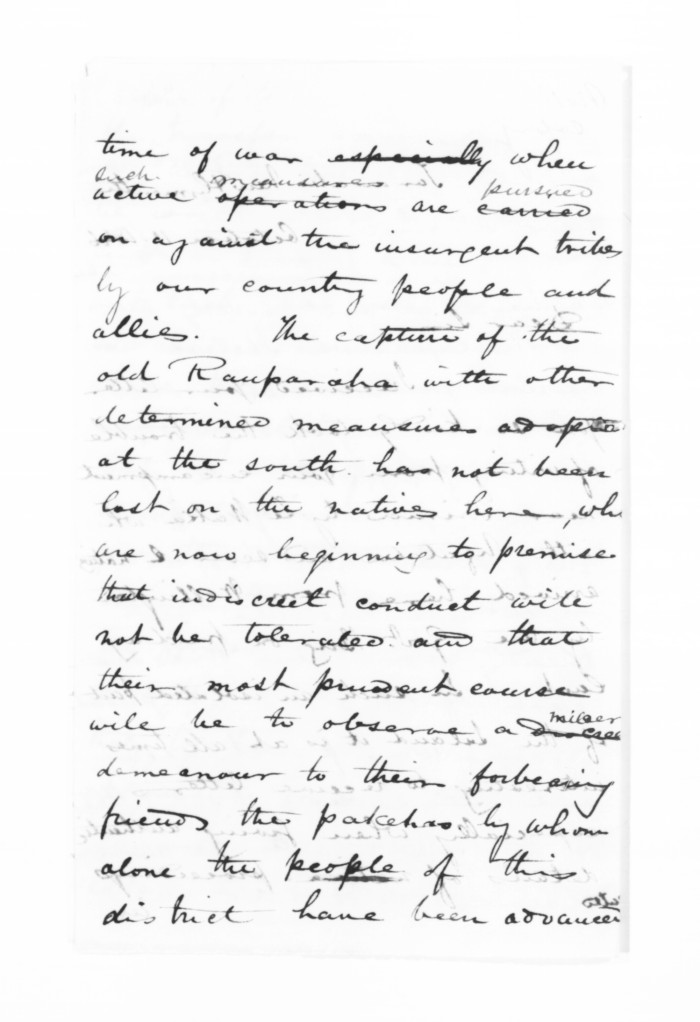 time of war especially when
such measures pursued
active operations are carried
on against the insurgent tribes
by our country people and
allies. The capture of the
old Rauparaha with other
determined measures adopted
at the south has not been
lost on the natives here, who
are now beginning to premise
that indiscreet conduct will
not be tolerated and that
their most prudent course
milder
will be to observe a
demeanour to their forbearing
friends the pakehas by whom
alone the people of this
district have been advanced